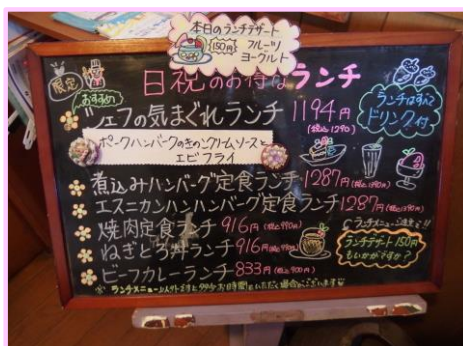 本日のランチデザート
150円 フルーツ
ヨーグルト
限定
日祝のお得なランチ
おすすめ
シェフの気まぐれランチ 1194円
(税込1290)
ランチはすべて
ドリンク付
ポークハンバーグのきのこクリームソースと
エビフライ
煮込みハンバーグ定食ランチ 1287円(税込1390円)
エスニカンハンバーグ定食ランチ 1287円(税込1390円)
焼肉定食ランチ 916円(税込990円)
ねぎとろ丼ランチ 916円(税込990円)
ビーフカレーランチ 833円(税込900円)
ランチデザート150円
もいかがですか?